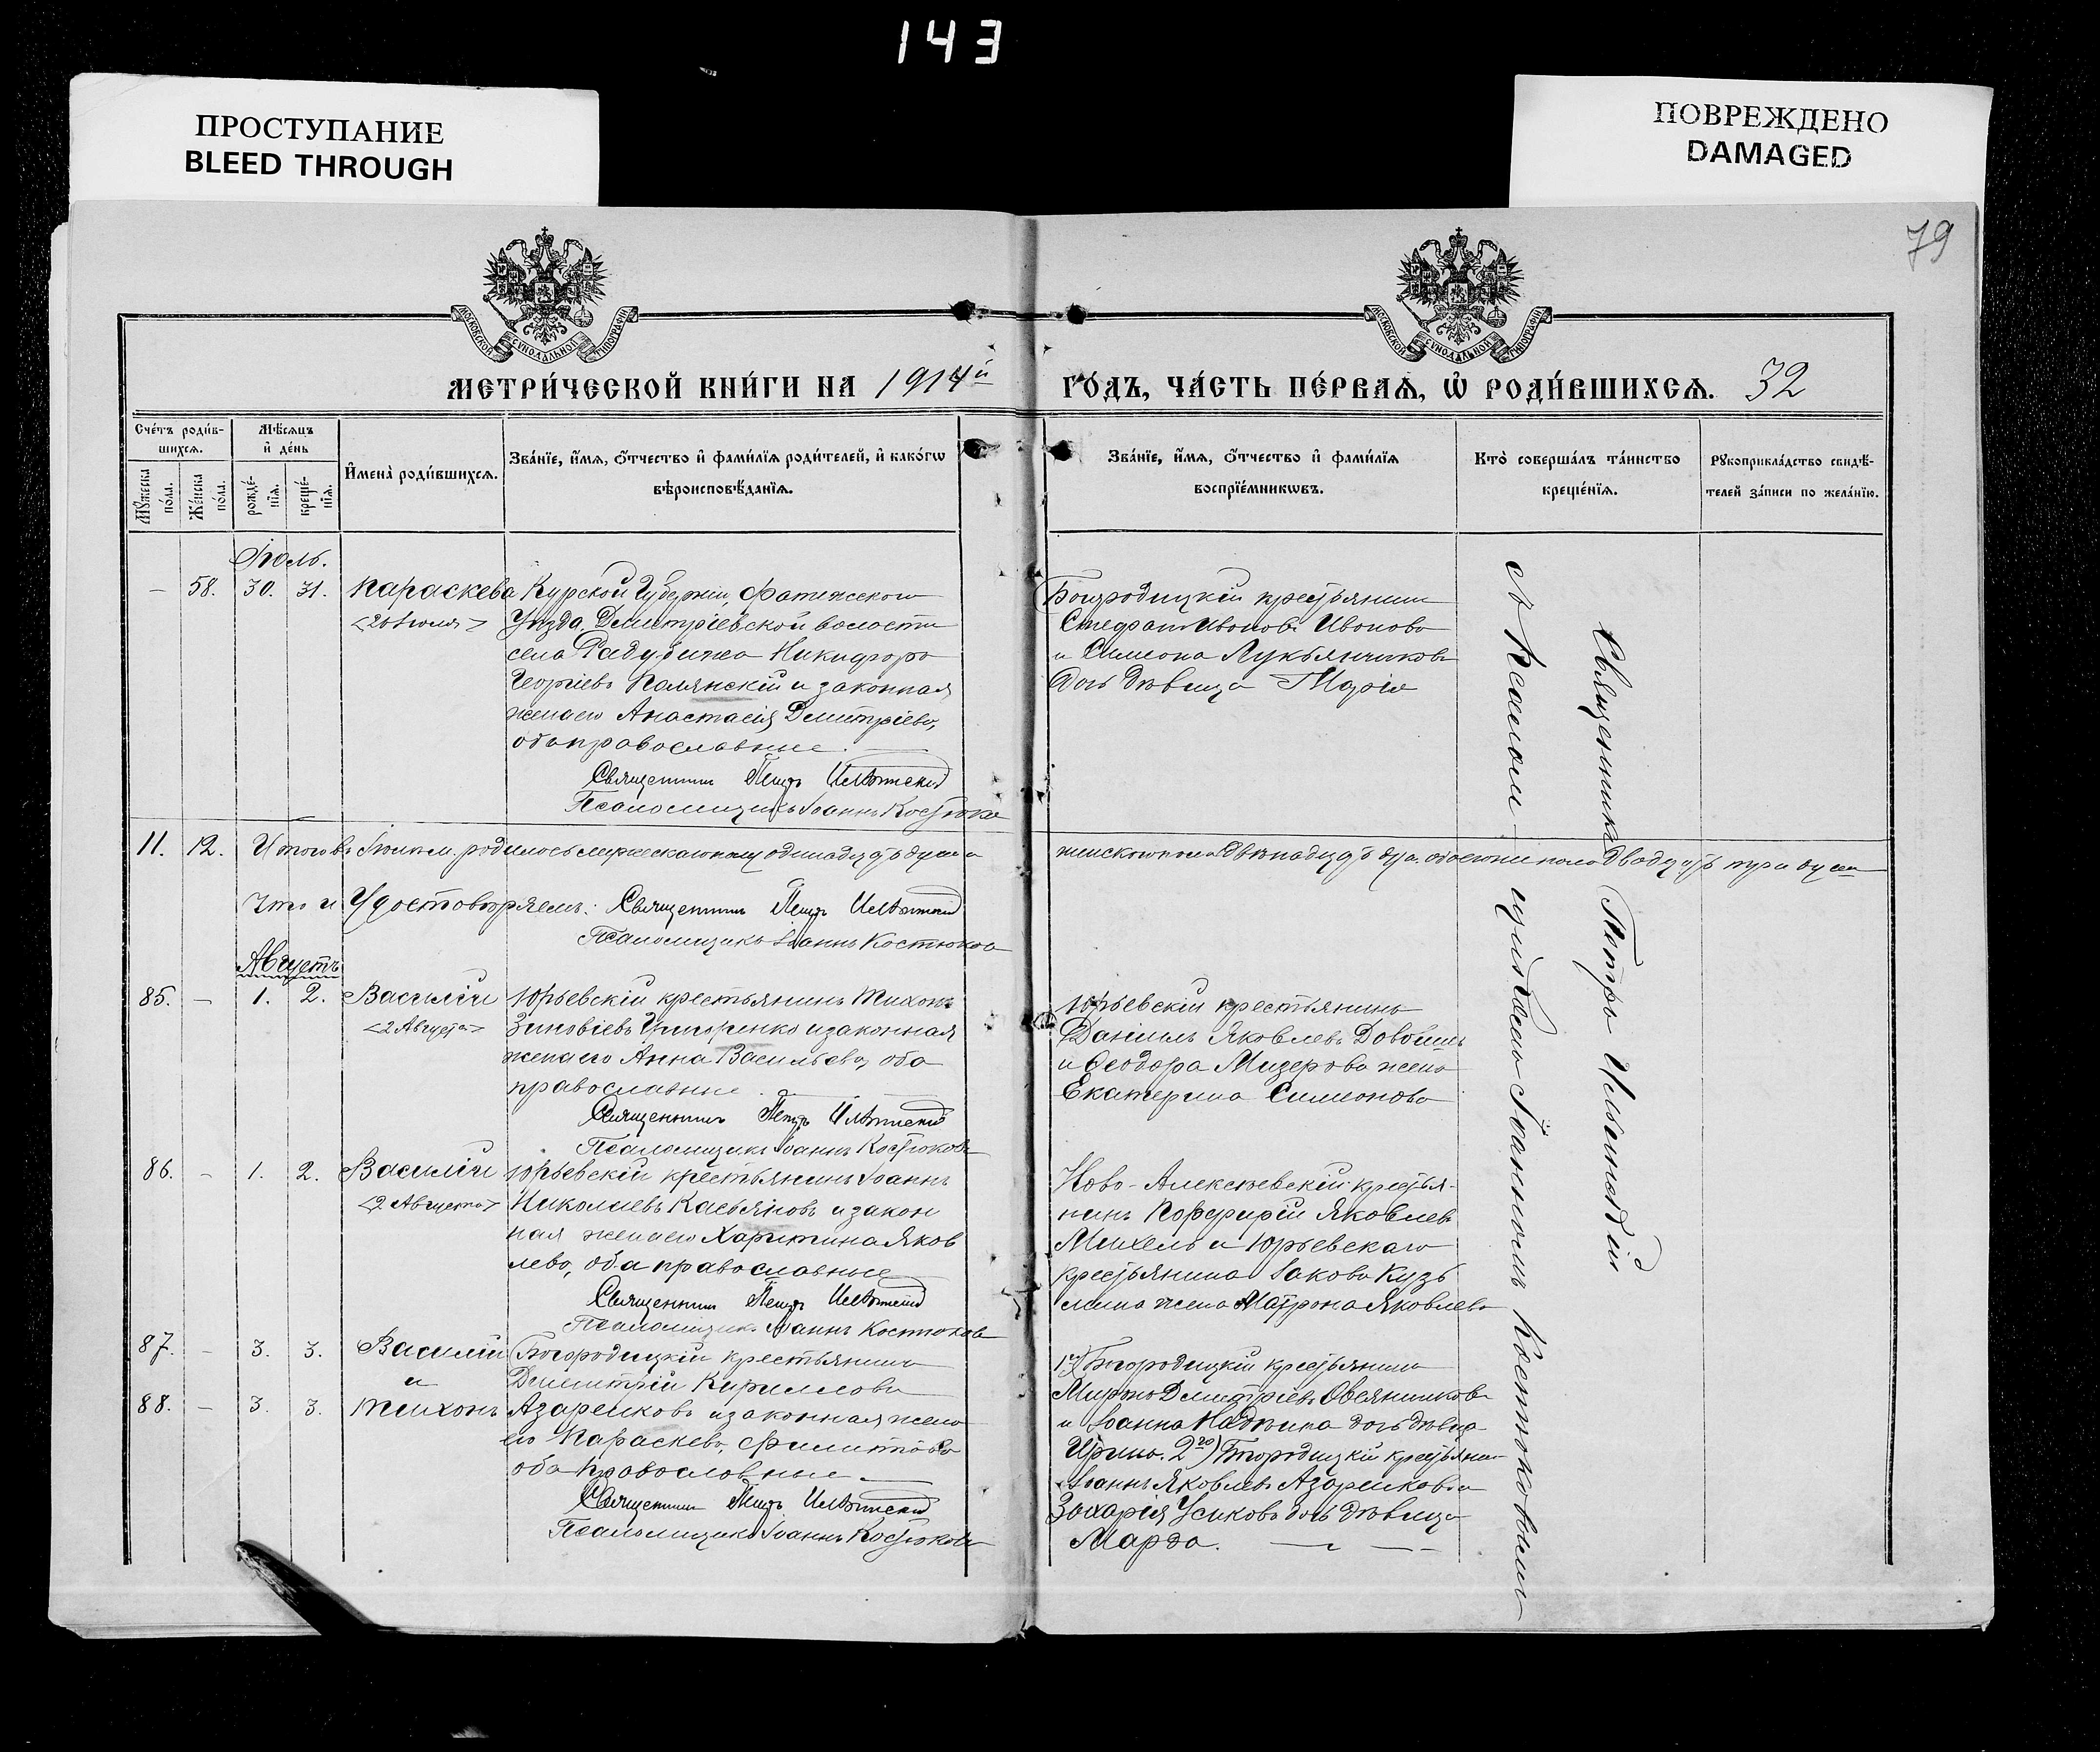 143
ПРОСТУПАНИЕ
BLEED THROUGH
ПОВРЕЖДЕНО
DAMAGED
79
МОСКОВСКОЙ СѴНОДАЛЬНОЙ ТИПОГРАФІИ
МОСКОВСКОЙ СѴНОДАЛЬНОЙ ТИПОГРАФІИ
МЕТРИ́ЧЕСКОЙ КНИ́ГИ НА 1914й
ГО́ДЪ, ЧА́СТЬ ПЕ́РВАѦ, Ѡ҆ РОДИ́ВШИХСѦ. 32
Сче́тъ роди́в-
шихсѧ.
Мѣ́сѧцъ
и҆ де́нь
Мꙋ́жеска
по́ла.
Же́нска
по́ла.
рожде́-
нїѧ.
креще́-
нїѧ.
И҆мена̀ роди́вшихсѧ.
Зва́нїе, и҆́мѧ, ѻ҆́тчество и҆ фами́лїѧ роди́телей, и҆ како́гѡ
вѣроисповѣ́данїѧ.
Зва́нїе, и҆́мѧ, ѻ҆́тчество и҆ фами́лїѧ
воспрїе́мникѡвъ.
Кто̀ соверша́лъ та́инство
креще́нїѧ.
Рꙋкоприкла́дство свидѣ́-
телей за́писи по жела́нїю.
Іюль.
— 58. 30. 31. Параскева
<28 Іюля>
Курской Губерніи, Фатежского
Уѣзда, Димитріевской волости
села Радубижа Никифоръ
Георгіевъ Полянскій и законная
жена его Анастасія Димитріева,
оба православные.
Священникъ Петръ
Псаломщикъ Іоаннъ Костюков
Богородицкій крестьянинъ
Стефанъ Ивановъ Иванова
и Симеона Лукьянчикова
дочь дѣвица Марія
11. 12. Итого въ Іюлѣ м. родилось мужескаго полу одинадцать душъ и
женского пола двѣнадцать душ. обоего же пола двадцать три души
что и Удостовѣряемъ: Священникъ Петръ
Псаломщикъ Іоаннъ Костюков
Августъ
85. — 1. 2. Василій
<2 Августа>
Юрьевскій крестьянинъ Тихонъ
Зиновіевъ Григоренко и законная
жена его Анна Васильева, оба
православные.
Священникъ Петръ
Псаломщикъ Іоаннъ Костюковъ
Юрьевскій крестьянинъ
Даніилъ Яковлевъ
и Ѳеодора Мизерова жена
Екатерина Симионова
86. — 1. 2. Василій
<2 Августа>
Юрьевскій крестьянинъ Іоаннъ
Николаевъ Касьяновъ и закон
ная жена его Харитина Яков
лева, оба православные
Священникъ Петръ
Псаломщик. Іоаннъ Костюков
Ново-Алексѣевскій крестья-
нинъ Порфирій Яковлевъ
и Юрьевскаго
крестьянина Іакова Кузь
мина жена Матрона Яковлева
87. — 3. 3. Василій
и
88. — 3. 3. Тихонъ
Богородицкій крестьянинъ
Димитрій Кирилловъ
Азаренковъ и законная жена
его Параскева Филиппова
оба православные
Священникъ Петръ
Псаломщикъ Іоаннъ Костюковъ
1го) Богородицкій крестьянинъ
Миронъ Димитріевъ Овсянников
и Іоанна дочь дѣвица
Ирина. 2го) Богородицкій крестьянин
Іоаннъ Яковлевъ Азаренковъ и
Захарія Усикова дочь дѣвица
Марѳа.
Священникъ Петръ
съ Псаломщикомъ Іоанномъ Костюковымъ